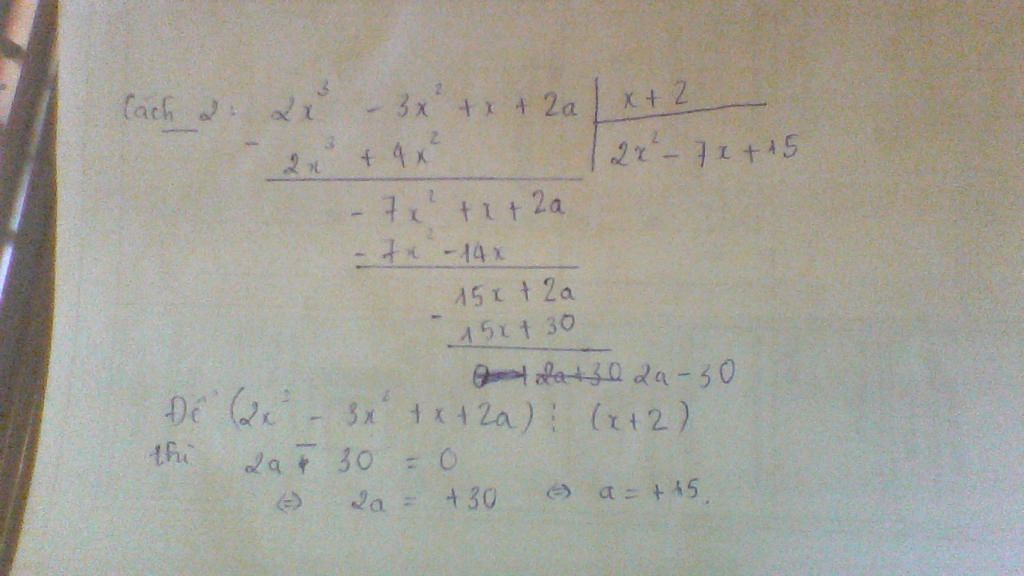 Cách 2: 2x³ - 3x² + x + 2a | x + 2
- 2x³ + 4x² | 2x² - 7x + 15
- 7x² + x + 2a
- 7x² - 14x
15x + 2a
- 15x + 30
2a - 30
Để (2x³ - 3x² + x + 2a) ⋮ (x + 2)
thì 2a - 30 = 0
⇔ 2a = +30 ⇔ a = +15.